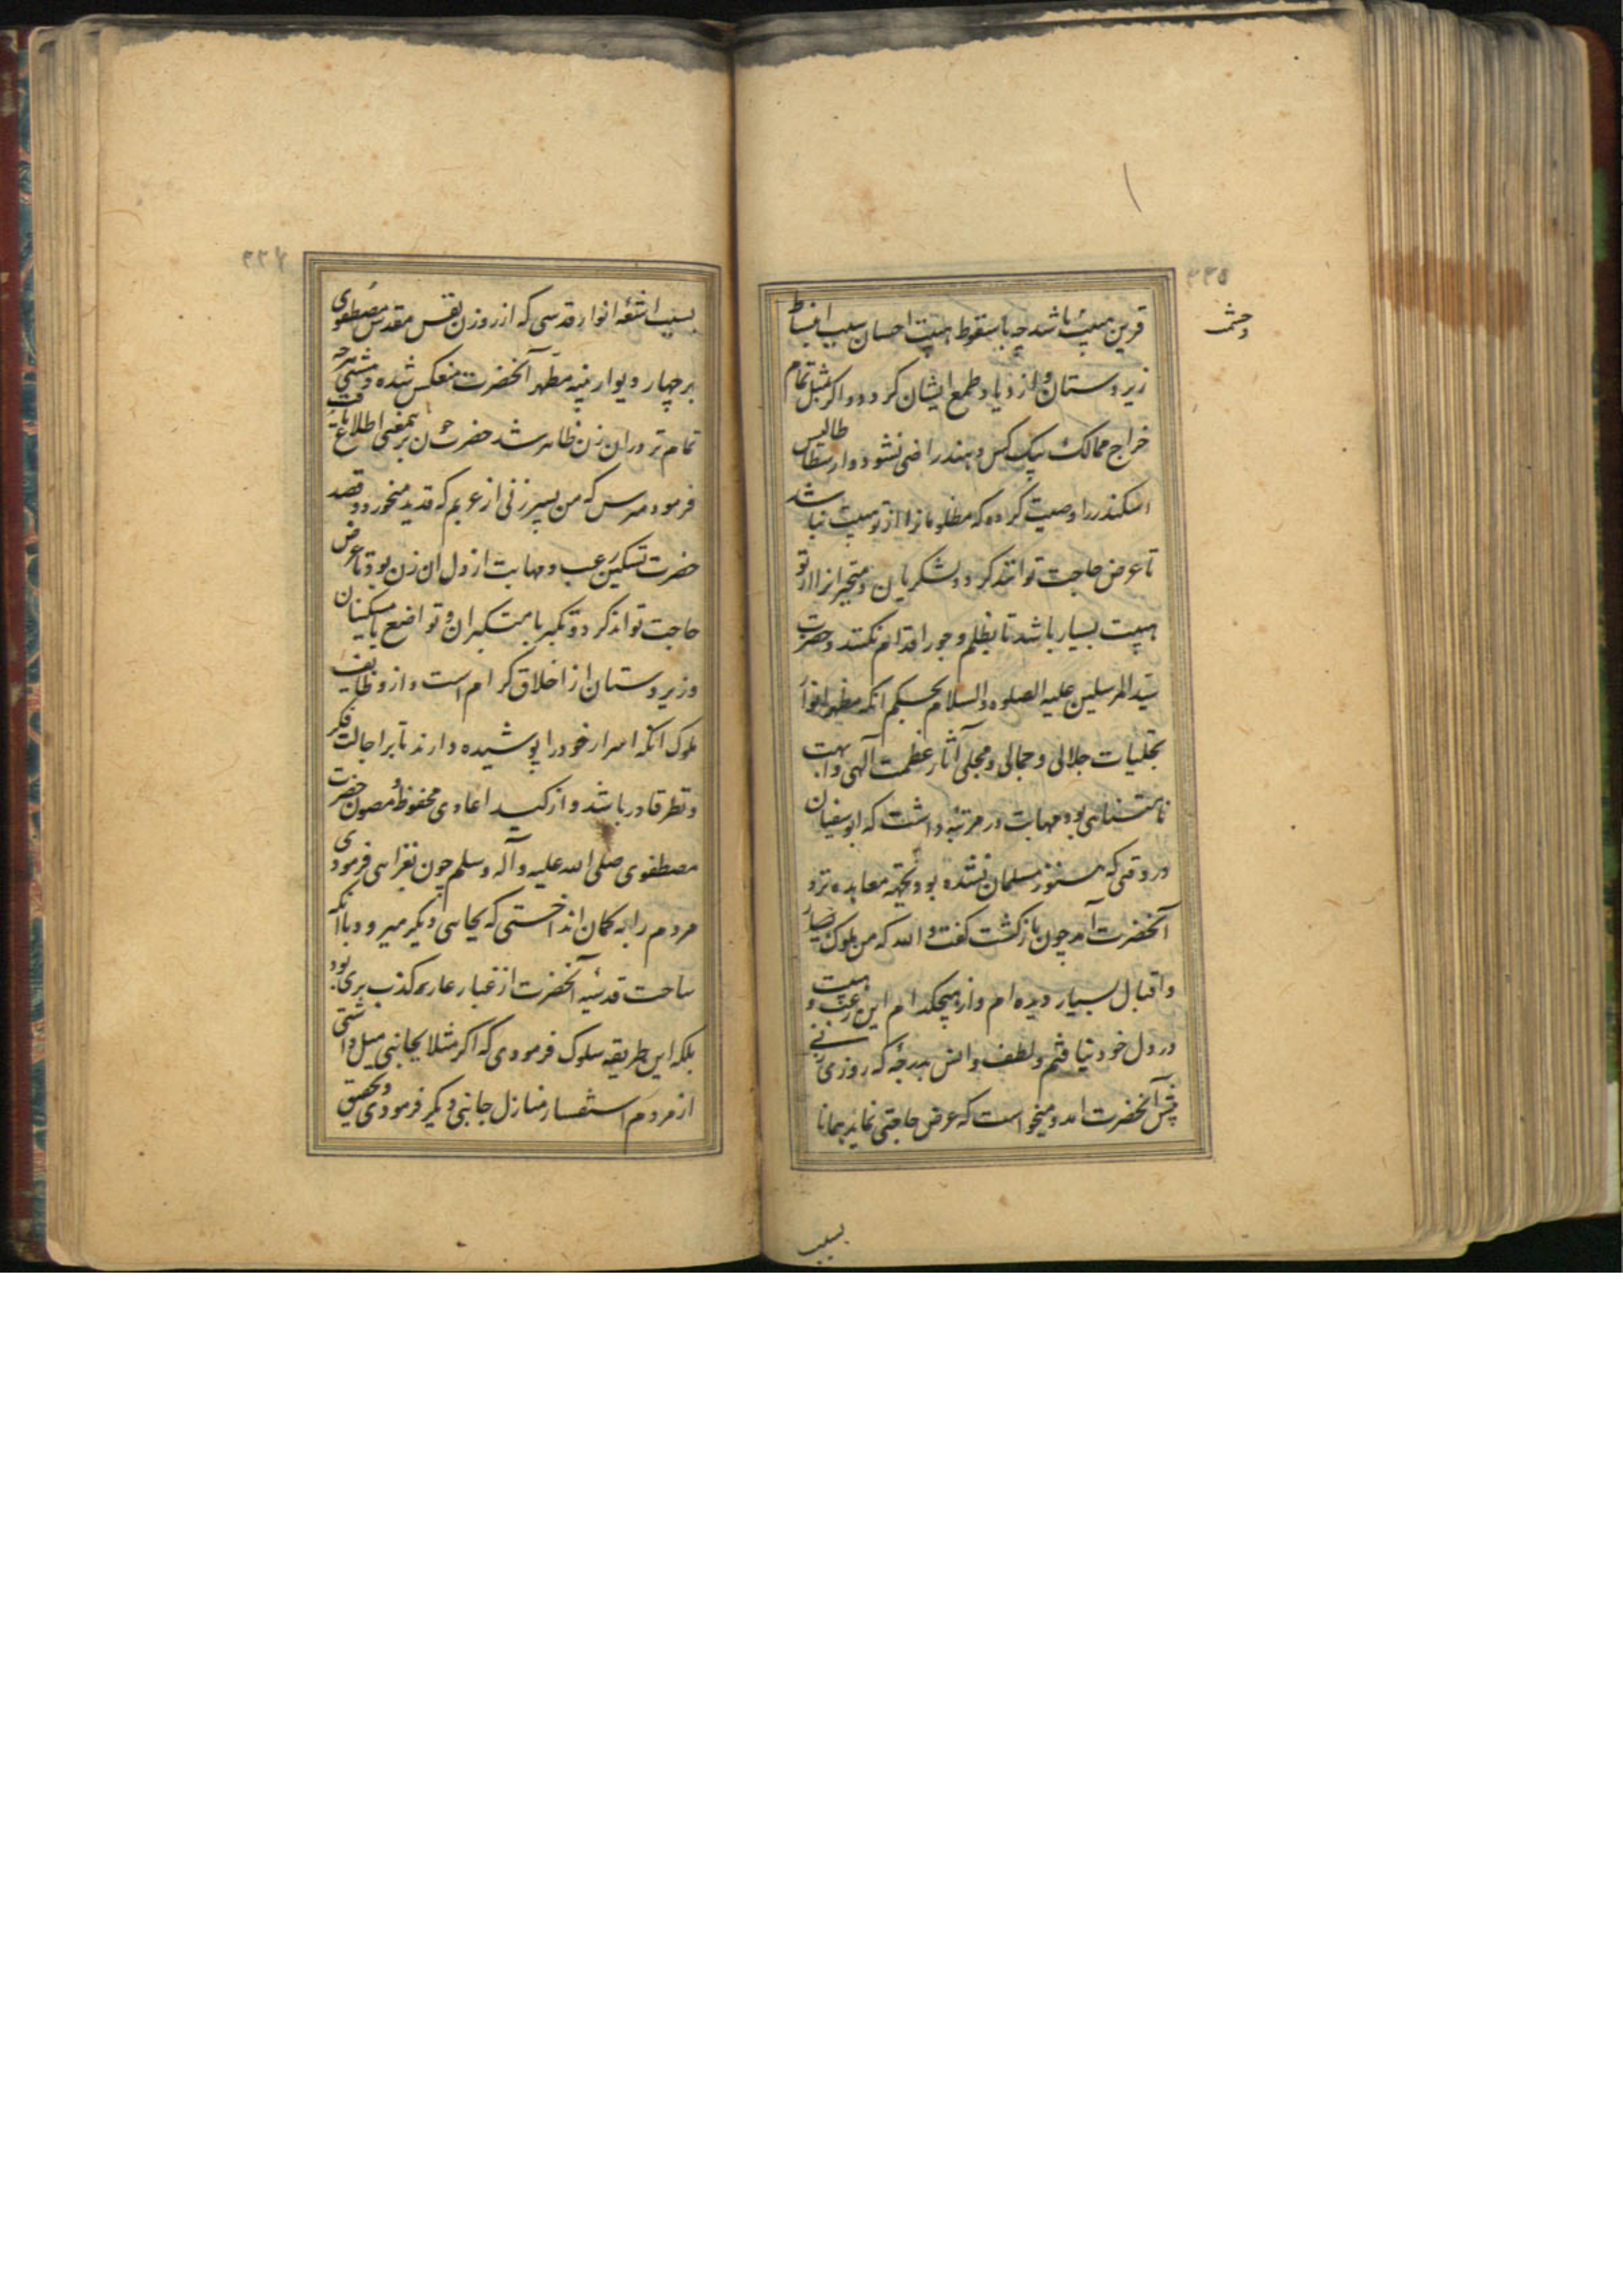 ۲۳۵
وحشم
قرین هیبت باشد چه با سقوط هیبت احسان سبب انبساط
زیردستان و ازدیاد طمع ایشان کردد و اکر بمثل تمام
خراج ممالک بیک کس دهند راضی نشود و ارسطاطالیس
اسکندر را وصیت کرده که مظلومانرا از تو هیبت نباشد
تا عرض حاجت توانند کرد و لشکریان و متجبرانرا از تو
هیبت بسیار باشد تا بظلم و جور اقدام نکنند و حضرت
سید المرسلین علیه الصلوه و السلام بحکم انکه مظهر انوار
تجلیات جلالی و جمالی و مجلی آثار عظمت آلهی و ابهت
نامتناهی بود مهابت در مرتبهٔ داشت که ابو سفیان
در وقتی که هنوز مسلمان نشده بود و بجهة معاهده نزد
آنحضرت آمد چون بازکشت کفت و الله که من ملوک
و اقبال بسیار دیده ام و از هیچکدام این رعب و هیبت
در دل خود نیافتم و لطف و انس بدرجهٔ که روزی زنی
پیش آنحضرت امد و میخواست که عرض حاجتی نماید همانا
بسبب
۲۳۶
بسبب اشعهٔ انوار قدسی که از روزن نفس مقدس مصطفوی
بر چهار دیوار بنیه مطهر آنحضرت منعکس شده
تمام تر در ان زن ظاهر شد حضرت چون بر اینمعنی اطلاع یافت
فرمود مترس که من پسر زنی از عربم که قدید میخورد و قصد
حضرت تسکین رعب و مهابت از دل ان زن بود تا عرض
حاجت تواند کرد و تکبر با متکبران و تواضع با مسکینان
و زیردستان از اخلاق کرام است و از وظایف
ملوک انکه اسرار خود را پوشیده دارند تا بر اجالت فکر
و نظر قادر باشد و از کید اعادی محفوظ و مصون حضرت
مصطفوی صلی الله علیه و آله و سلم چون بغزاهی فرمودی
مردم را به کمان انداختی که بجاهی دیکر میرود با آنکه
ساحت قدسیه آنحضرت از غبار عار کذب بری بود
بلکه این طریقه سلوک فرمودی که اکر مثلا بجانبی میل داشتی
از مردم استفسار منازل جانبی دیکر فرمودی و تحقیق